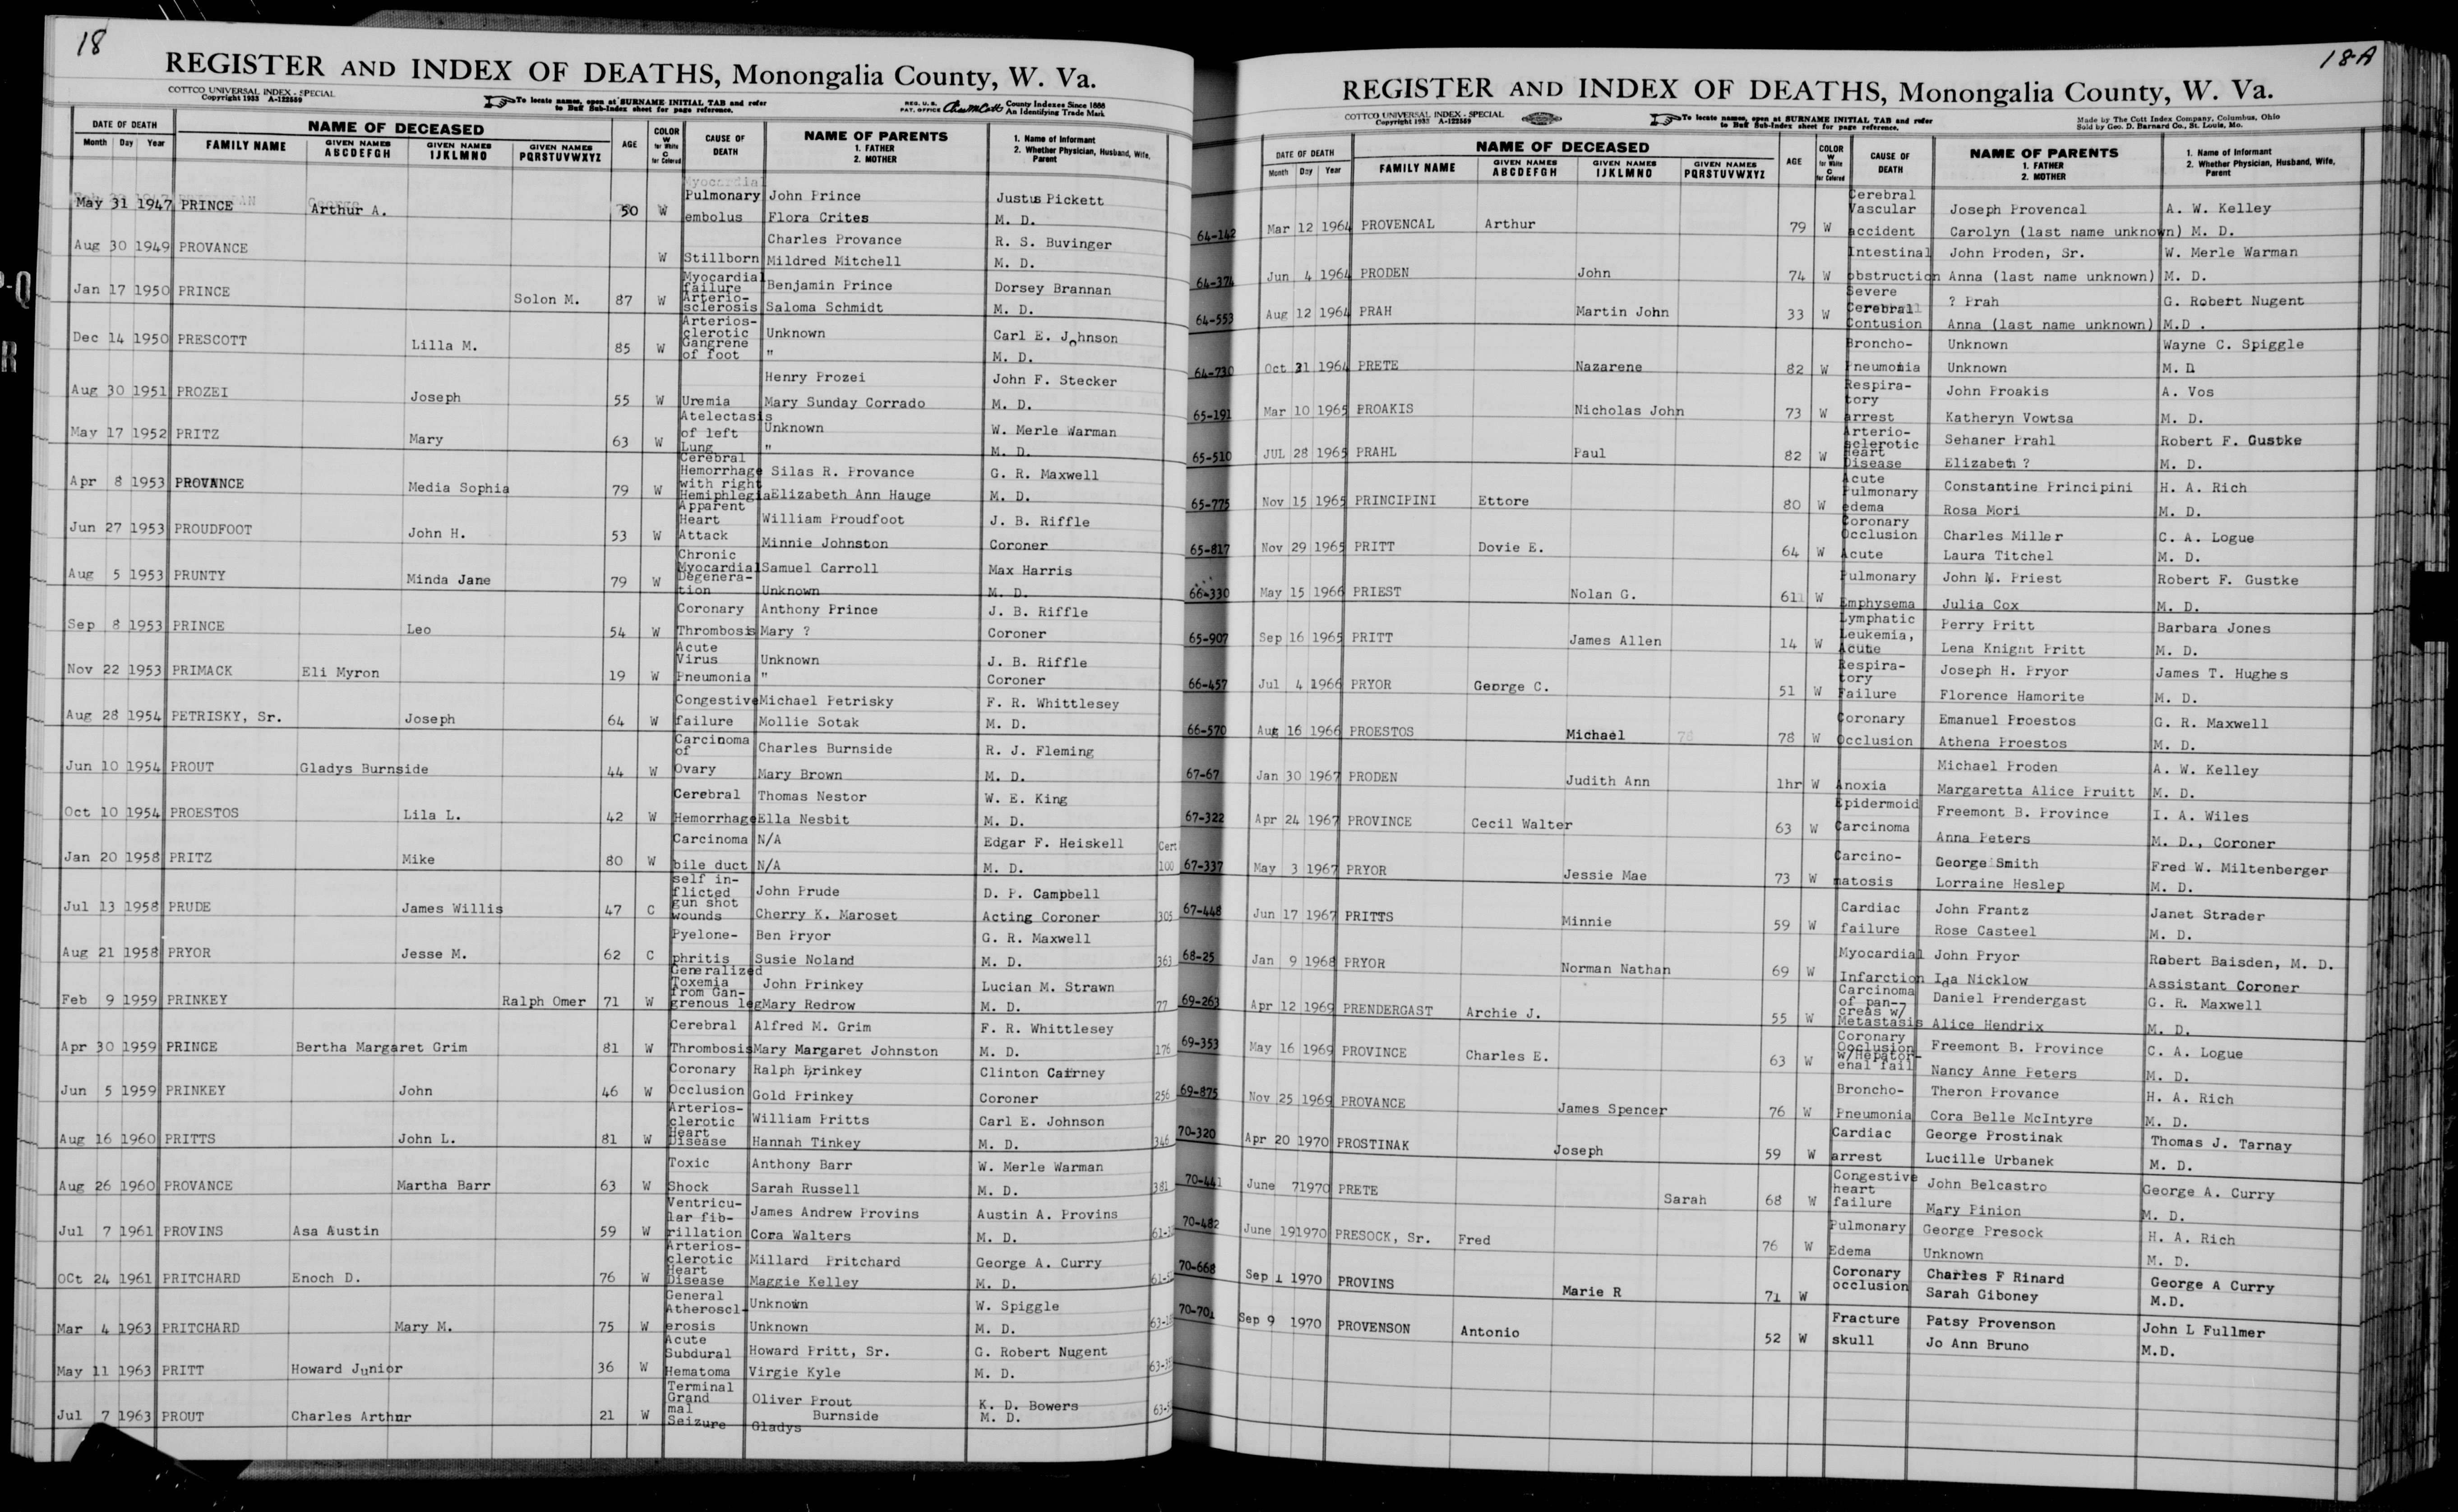 18
REGISTER AND INDEX OF DEATHS, Monongalia County, W. Va.
COTTCO UNIVERSAL INDEX - SPECIAL
Copyright 1933 A-122559
To locate names, open at SURNAME INITIAL TAB and refer
to Buff Sub-Index sheet for page reference.
REG. U. S. PAT. OFFICE County Indexes Since 1888
An Identifying Trade Mark
DATE OF DEATH NAME OF DECEASED AGE COLOR W for White C for Colored CAUSE OF DEATH NAME OF PARENTS 1. FATHER 2. MOTHER 1. Name of Informant 2. Whether Physician, Husband, Wife, Parent
Month Day Year FAMILY NAME GIVEN NAMES ABCDEFGH GIVEN NAMES IJKLMNO GIVEN NAMES PQRSTUVWXYZ
May 31 1947 PRINCE Arthur A. 50 W Pulmonary embolus John Prince Flora Crites Justus Pickett M. D.
Aug 30 1949 PROVANCE W Stillborn Charles Provance Mildred Mitchell R. S. Buvinger M. D.
Jan 17 1950 PRINCE Solon M. 87 W Myocardial failure Arterio-sclerosis Benjamin Prince Saloma Schmidt Dorsey Brannan M. D.
Dec 14 1950 PRESCOTT Lilla M. 85 W Arterios-clerotic Gangrene of foot Unknown " Carl E. Johnson M. D.
Aug 30 1951 PROZEI Joseph 55 W Uremia Henry Prozei Mary Sunday Corrado John F. Stecker M. D.
May 17 1952 PRITZ Mary 63 W Atelectasis of left Lung Unknown " W. Merle Warman M. D.
Apr 8 1953 PROVANCE Media Sophia 79 W Cerebral Hemorrhage with right Hemiphlegia Silas R. Provance Elizabeth Ann Hauge G. R. Maxwell M. D.
Jun 27 1953 PROUDFOOT John H. 53 W Apparent Heart Attack William Proudfoot Minnie Johnston J. B. Riffle Coroner
Aug 5 1953 PRUNTY Minda Jane 79 W Chronic Myocardial Degenera-tion Samuel Carroll Unknown Max Harris M. D.
Sep 8 1953 PRINCE Leo 54 W Coronary Thrombosis Anthony Prince Mary ? J. B. Riffle Coroner
Nov 22 1953 PRIMACK Eli Myron 19 W Acute Virus Pneumonia Unknown " J. B. Riffle Coroner
Aug 28 1954 PETRISKY, Sr. Joseph 64 W Congestive failure Michael Petrisky Mollie Sotak F. R. Whittlesey M. D.
Jun 10 1954 PROUT Gladys Burnside 44 W Carcinoma of Ovary Charles Burnside Mary Brown R. J. Fleming M. D.
Oct 10 1954 PROESTOS Lila L. 42 W Cerebral Hemorrhage Thomas Nestor Ella Nesbit W. E. King M. D.
Jan 20 1958 PRITZ Mike 80 W Carcinoma bile duct N/A N/A Edgar F. Heiskell M. D. Cert 100
Jul 13 1958 PRUDE James Willis 47 C self in-flicted gun shot wounds John Prude Cherry K. Maroset D. P. Campbell Acting Coroner 305
Aug 21 1958 PRYOR Jesse M. 62 C Pyelone-phritis Ben Pryor Susie Noland G. R. Maxwell M. D. 363
Feb 9 1959 PRINKEY Ralph Omer 71 W Generalized Toxemia from Gan-grenous leg John Prinkey Mary Redrow Lucian M. Strawn M. D. 77
Apr 30 1959 PRINCE Bertha Margaret Grim 81 W Cerebral Thrombosis Alfred M. Grim Mary Margaret Johnston F. R. Whittlesey M. D. 176
Jun 5 1959 PRINKEY John 46 W Coronary Occlusion Ralph Prinkey Gold Prinkey Clinton Cairney Coroner 256
Aug 16 1960 PRITTS John L. 81 W Arterios-clerotic Heart Disease William Pritts Hannah Tinkey Carl E. Johnson M. D. 346
Aug 26 1960 PROVANCE Martha Barr 63 W Toxic Shock Anthony Barr Sarah Russell W. Merle Warman M. D. 381
Jul 7 1961 PROVINS Asa Austin 59 W Ventricu-lar fib-rillation James Andrew Provins Cora Walters Austin A. Provins M. D.
OCt 24 1961 PRITCHARD Enoch D. 76 W Arterios-clerotic Heart Disease Millard Pritchard Maggie Kelley George A. Curry M. D.
Mar 4 1963 PRITCHARD Mary M. 75 W General Atheroscl-erosis Unknown Unknown W. Spiggle M. D.
May 11 1963 PRITT Howard Junior 36 W Acute Subdural Hematoma Howard Pritt, Sr. Virgie Kyle G. Robert Nugent M. D.
Jul 7 1963 PROUT Charles Arthur 21 W Terminal Grand mal Seizure Oliver Prout Gladys Burnside K. D. Bowers M. D.
18A
REGISTER AND INDEX OF DEATHS, Monongalia County, W. Va.
COTTCO UNIVERSAL INDEX - SPECIAL
Copyright 1933 A-122559
To locate names, open at SURNAME INITIAL TAB and refer
to Buff Sub-Index sheet for page reference.
Made by The Cott Index Company, Columbus, Ohio
Sold by Geo. D. Barnard Co., St. Louis, Mo.
DATE OF DEATH NAME OF DECEASED AGE COLOR W for White C for Colored CAUSE OF DEATH NAME OF PARENTS 1. FATHER 2. MOTHER 1. Name of Informant 2. Whether Physician, Husband, Wife, Parent
Month Day Year FAMILY NAME GIVEN NAMES ABCDEFGH GIVEN NAMES IJKLMNO GIVEN NAMES PQRSTUVWXYZ
64-142 Mar 12 1964 PROVENCAL Arthur 79 W Cerebral Vascular accident Joseph Provencal Carolyn (last name unknown) A. W. Kelley M. D.
64-374 Jun 4 1964 PRODEN John 74 W Intestinal obstruction John Proden, Sr. Anna (last name unknown) W. Merle Warman M. D.
64-553 Aug 12 1964 PRAH Martin John 33 W Severe Cerebral Contusion ? Prah Anna (last name unknown) G. Robert Nugent M.D .
64-730 Oct 21 1964 PRETE Nazarene 82 W Broncho-Pneumonia Unknown Unknown Wayne C. Spiggle M. D
65-191 Mar 10 1965 PROAKIS Nicholas John 73 W Respira-tory arrest John Proakis Katheryn Vowtsa A. Vos M. D.
65-510 JUL 28 1965 PRAHL Paul 82 W Arterio-sclerotic Heart Disease Sehaner Prahl Elizabeth ? Robert F. Gustke M. D.
65-775 Nov 15 1965 PRINCIPINI Ettore 80 W Acute Pulmonary edema Constantine Principini Rosa Mori H. A. Rich M. D.
65-817 Nov 29 1965 PRITT Dovie E. 64 W Coronary Occlusion Acute Charles Miller Laura Titchel C. A. Logue M. D.
66-330 May 15 1966 PRIEST Nolan G. 61 W Pulmonary Emphysema John M. Priest Julia Cox Robert F. Gustke M. D.
65-907 Sep 16 1965 PRITT James Allen 14 W Lymphatic Leukemia, Acute Perry Pritt Lena Knight Pritt Barbara Jones M. D.
66-457 Jul 4 1966 PRYOR George C. 51 W Respira-tory Failure Joseph H. Pryor Florence Hamorite James T. Hughes M. D.
66-570 Aug 16 1966 PROESTOS Michael 78 W Coronary Occlusion Emanuel Proestos Athena Proestos G. R. Maxwell M. D.
67-67 Jan 30 1967 PRODEN Judith Ann 1hr W Anoxia Michael Proden Margaretta Alice Pruitt A. W. Kelley M. D.
67-322 Apr 24 1967 PROVINCE Cecil Walter 63 W Epidermoid Carcinoma Freemont B. Province Anna Peters I. A. Wiles M. D., Coroner
67-337 May 3 1967 PRYOR Jessie Mae 73 W Carcino-matosis George Smith Lorraine Heslep Fred W. Miltenberger M. D.
67-448 Jun 17 1967 PRITTS Minnie 59 W Cardiac failure John Frantz Rose Casteel Janet Strader M. D.
68-25 Jan 9 1968 PRYOR Norman Nathan 69 W Myocardial Infarction John Pryor Ida Nicklow Robert Baisden, M. D. Assistant Coroner
69-263 Apr 12 1969 PRENDERGAST Archie J. 55 W Carcinoma of pan-creas w/ Metastasis Daniel Prendergast Alice Hendrix G. R. Maxwell M. D.
69-353 May 16 1969 PROVINCE Charles E. 63 W Coronary Occlusion w/Hepator-enal fail Freemont B. Province Nancy Anne Peters C. A. Logue M. D.
69-875 Nov 25 1969 PROVANCE James Spencer 76 W Broncho-Pneumonia Theron Provance Cora Belle McIntyre H. A. Rich M. D.
70-320 Apr 20 1970 PROSTINAK Joseph 59 W Cardiac arrest George Prostinak Lucille Urbanek Thomas J. Tarnay M. D.
70-441 June 7 1970 PRETE Sarah 68 W Congestive heart failure John Belcastro Mary Pinion George A. Curry M. D.
70-482 June 19 1970 PRESOCK, Sr. Fred 76 W Pulmonary Edema George Presock Unknown H. A. Rich M. D.
70-668 Sep 1 1970 PROVINS Marie R 71 W Coronary occlusion Charles F Rinard Sarah Giboney George A Curry M.D.
70-701 Sep 9 1970 PROVENSON Antonio 52 W Fracture skull Patsy Provenson Jo Ann Bruno John L Fullmer M.D.